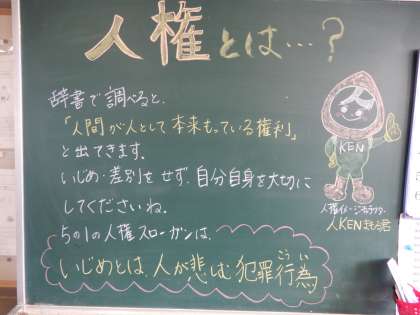 人権とは…?
辞書で調べると、
「人間が人として本来もっている権利」
と出てきます。
いじめ・差別をせず、自分自身を大切に
してくださいね。
5の1の人権スローガンは、
いじめとは、人が悲しむ犯罪行為
こうい
KEN
人権イメージキャラクター
人KENまもる君